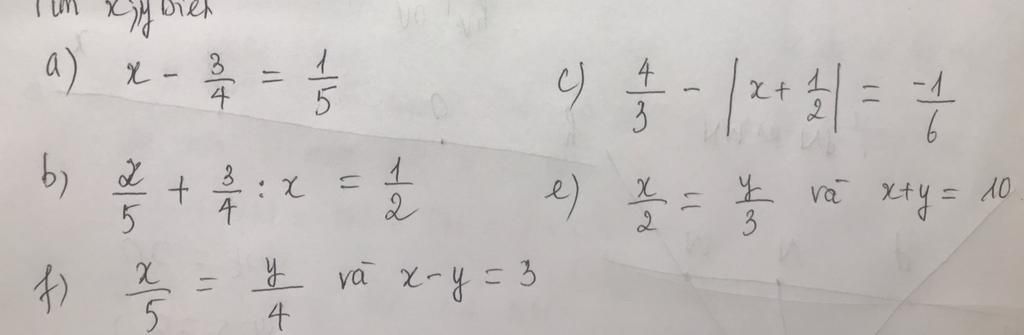 Tìm x,y biết
a) x - 3/4 = 1/5
c) 4/3 - |x + 1/2| = -1/6
b) 2/5 + 3/4 : x = 1/2
e) x/2 = y/3 và x+y = 10
f) x/5 = y/4 và x-y = 3